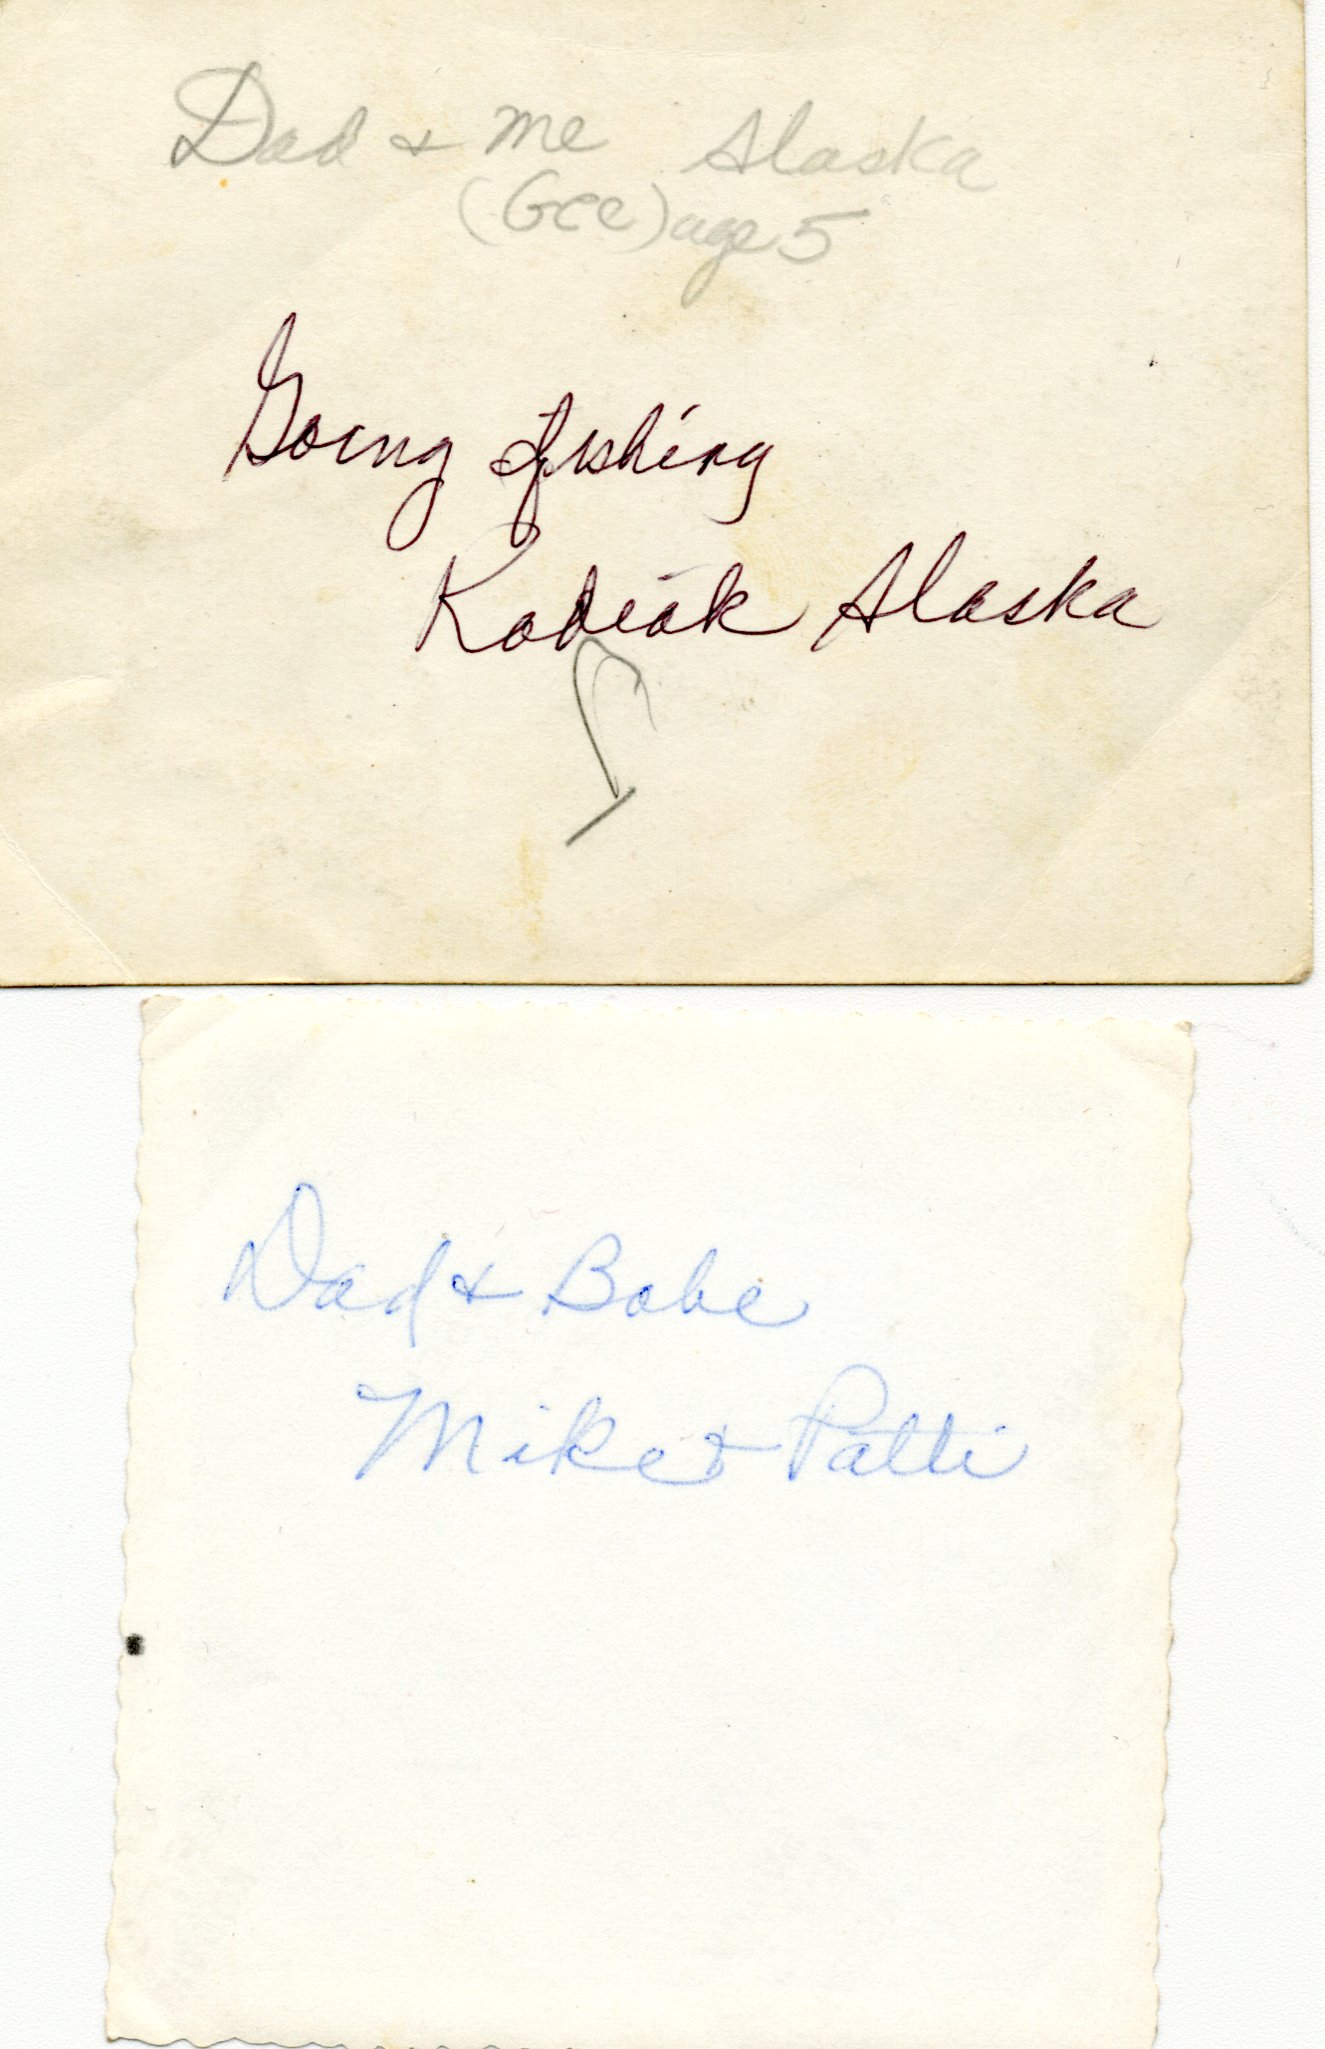 Dad & me Alaska
(Gee) age 5
Going fishing
Kodiak Alaska
Dad & Babe
Mike & Patti